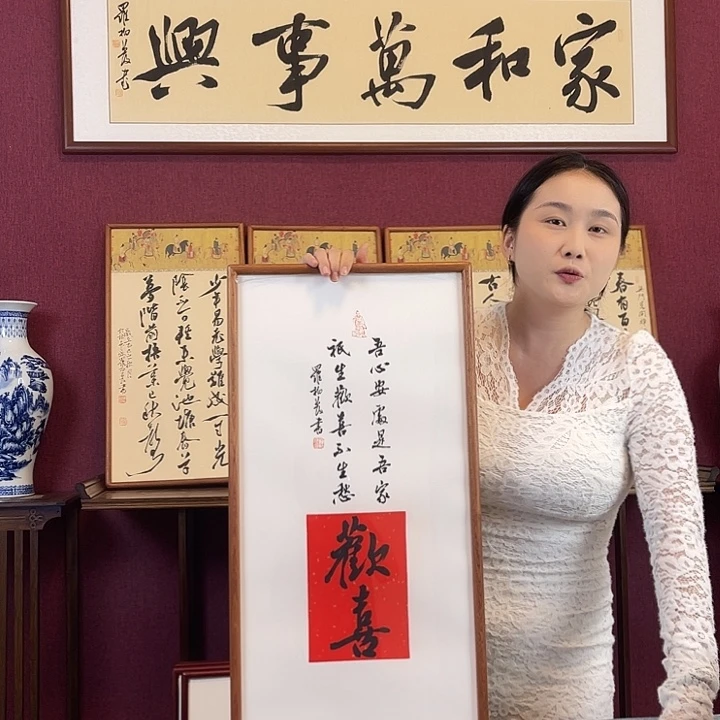 家和萬事興
春有百
古人
少年易老學難成一寸光
陰不可輕未覺池塘春草
夢階前梧葉已秋聲
吾心安處是吾家
祇生歡喜不生愁
歡喜